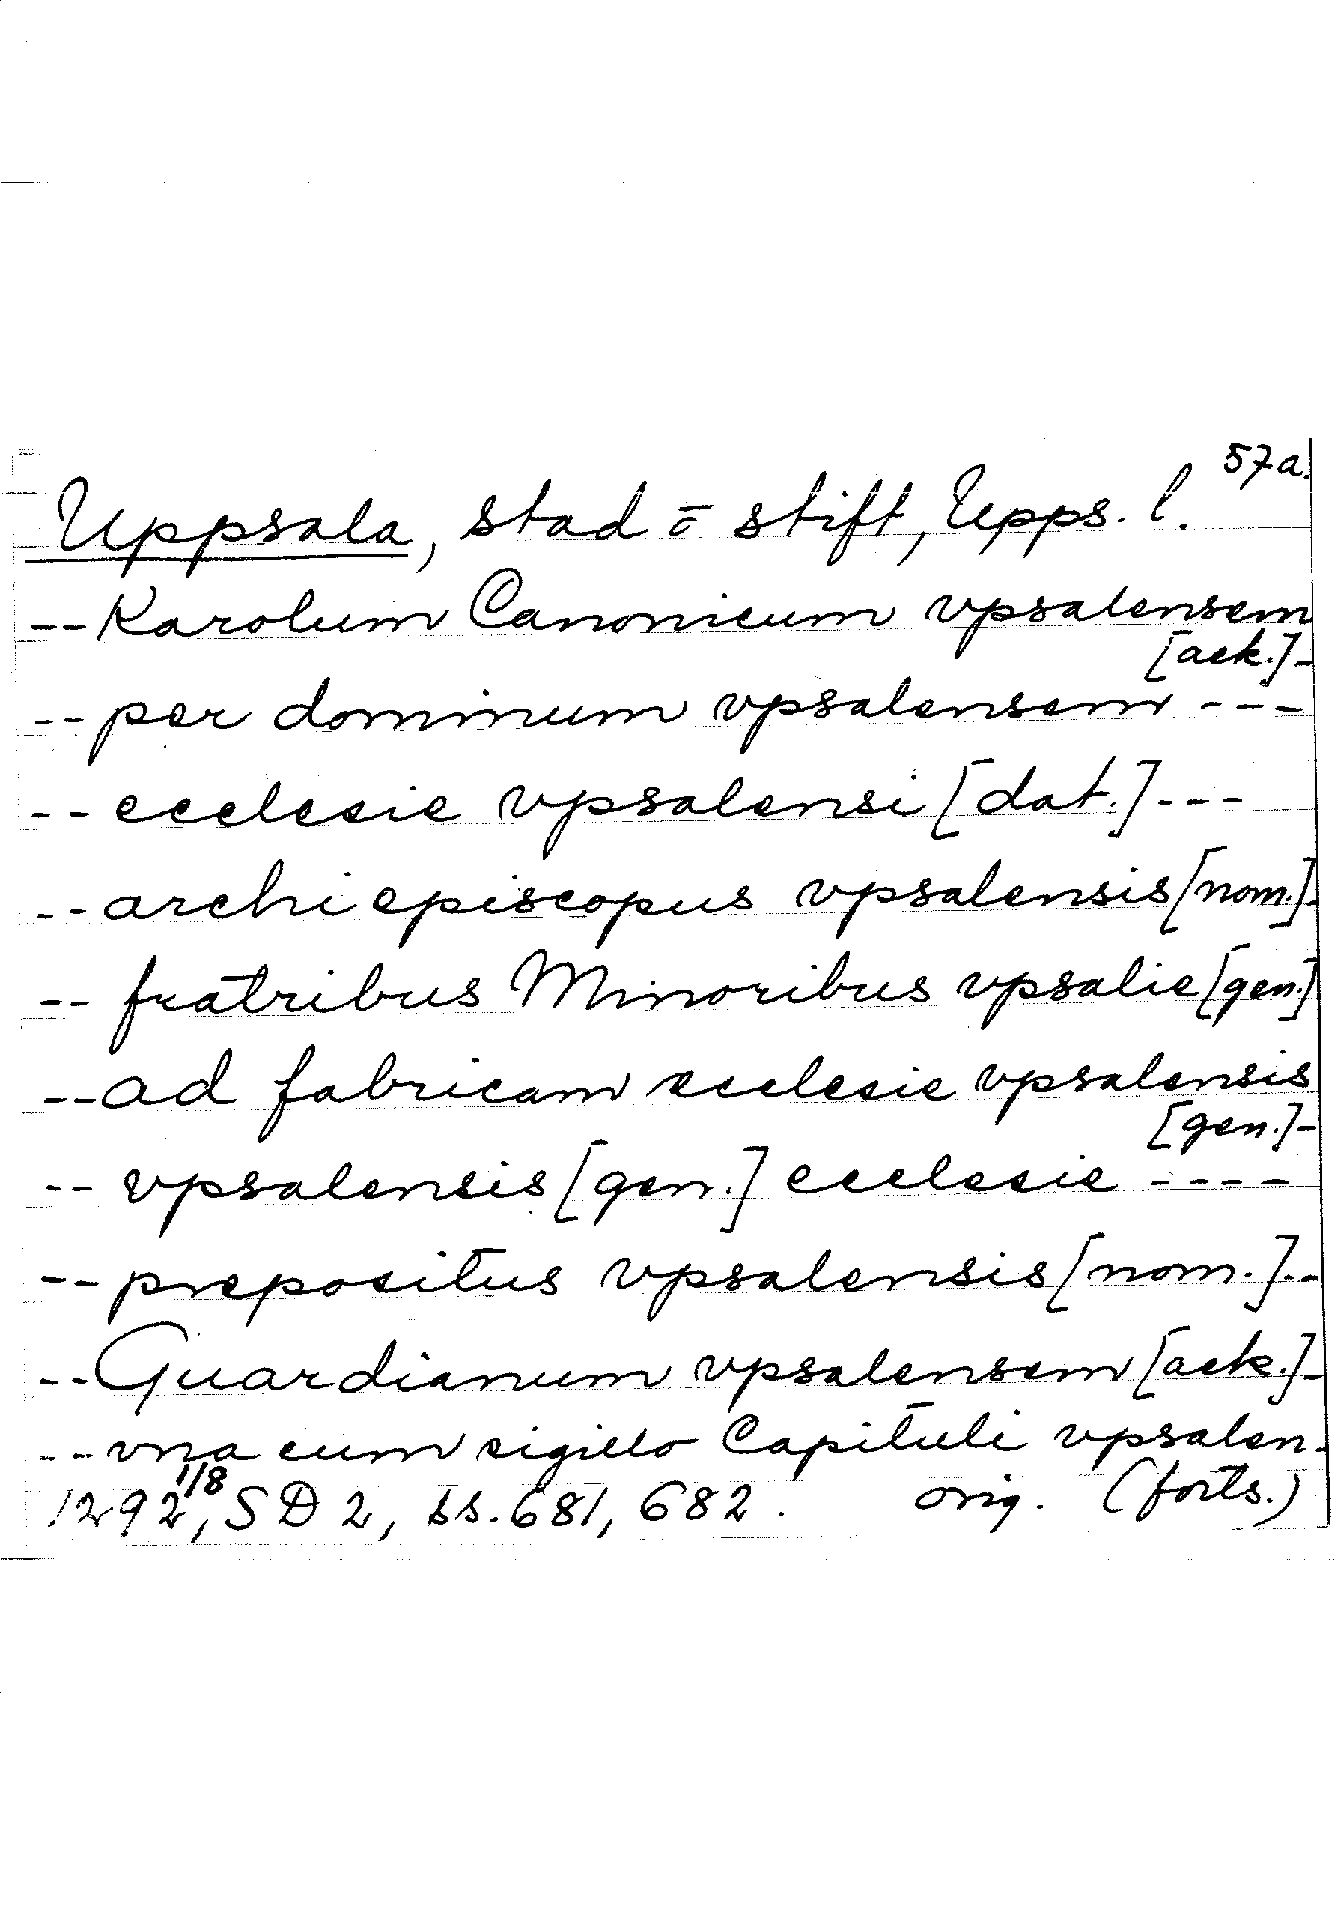 57a.
Uppsala, stad o stift, Upps. l.
-- Karolum Canonicum vpsalensem
[ack.]-
-- per dominum vpsalensem ---
-- ecclesie vpsalensi [dat.] ---
-- archiepiscopus vpsalensis [nom.]-
-- fratribus Minoribus vpsalie [gen.]
-- ad fabricam ecclesie vpsalensis
[gen.]-
-- vpsalensis [gen.] ecclesie ----
-- prepositus vpsalensis [nom.]--
-- Guardianum vpsalensem [ack.]-
-- vna cum sigillo Capituli vpsalen-
1292 1/8, SD 2, ss. 681, 682. orig. (forts.)